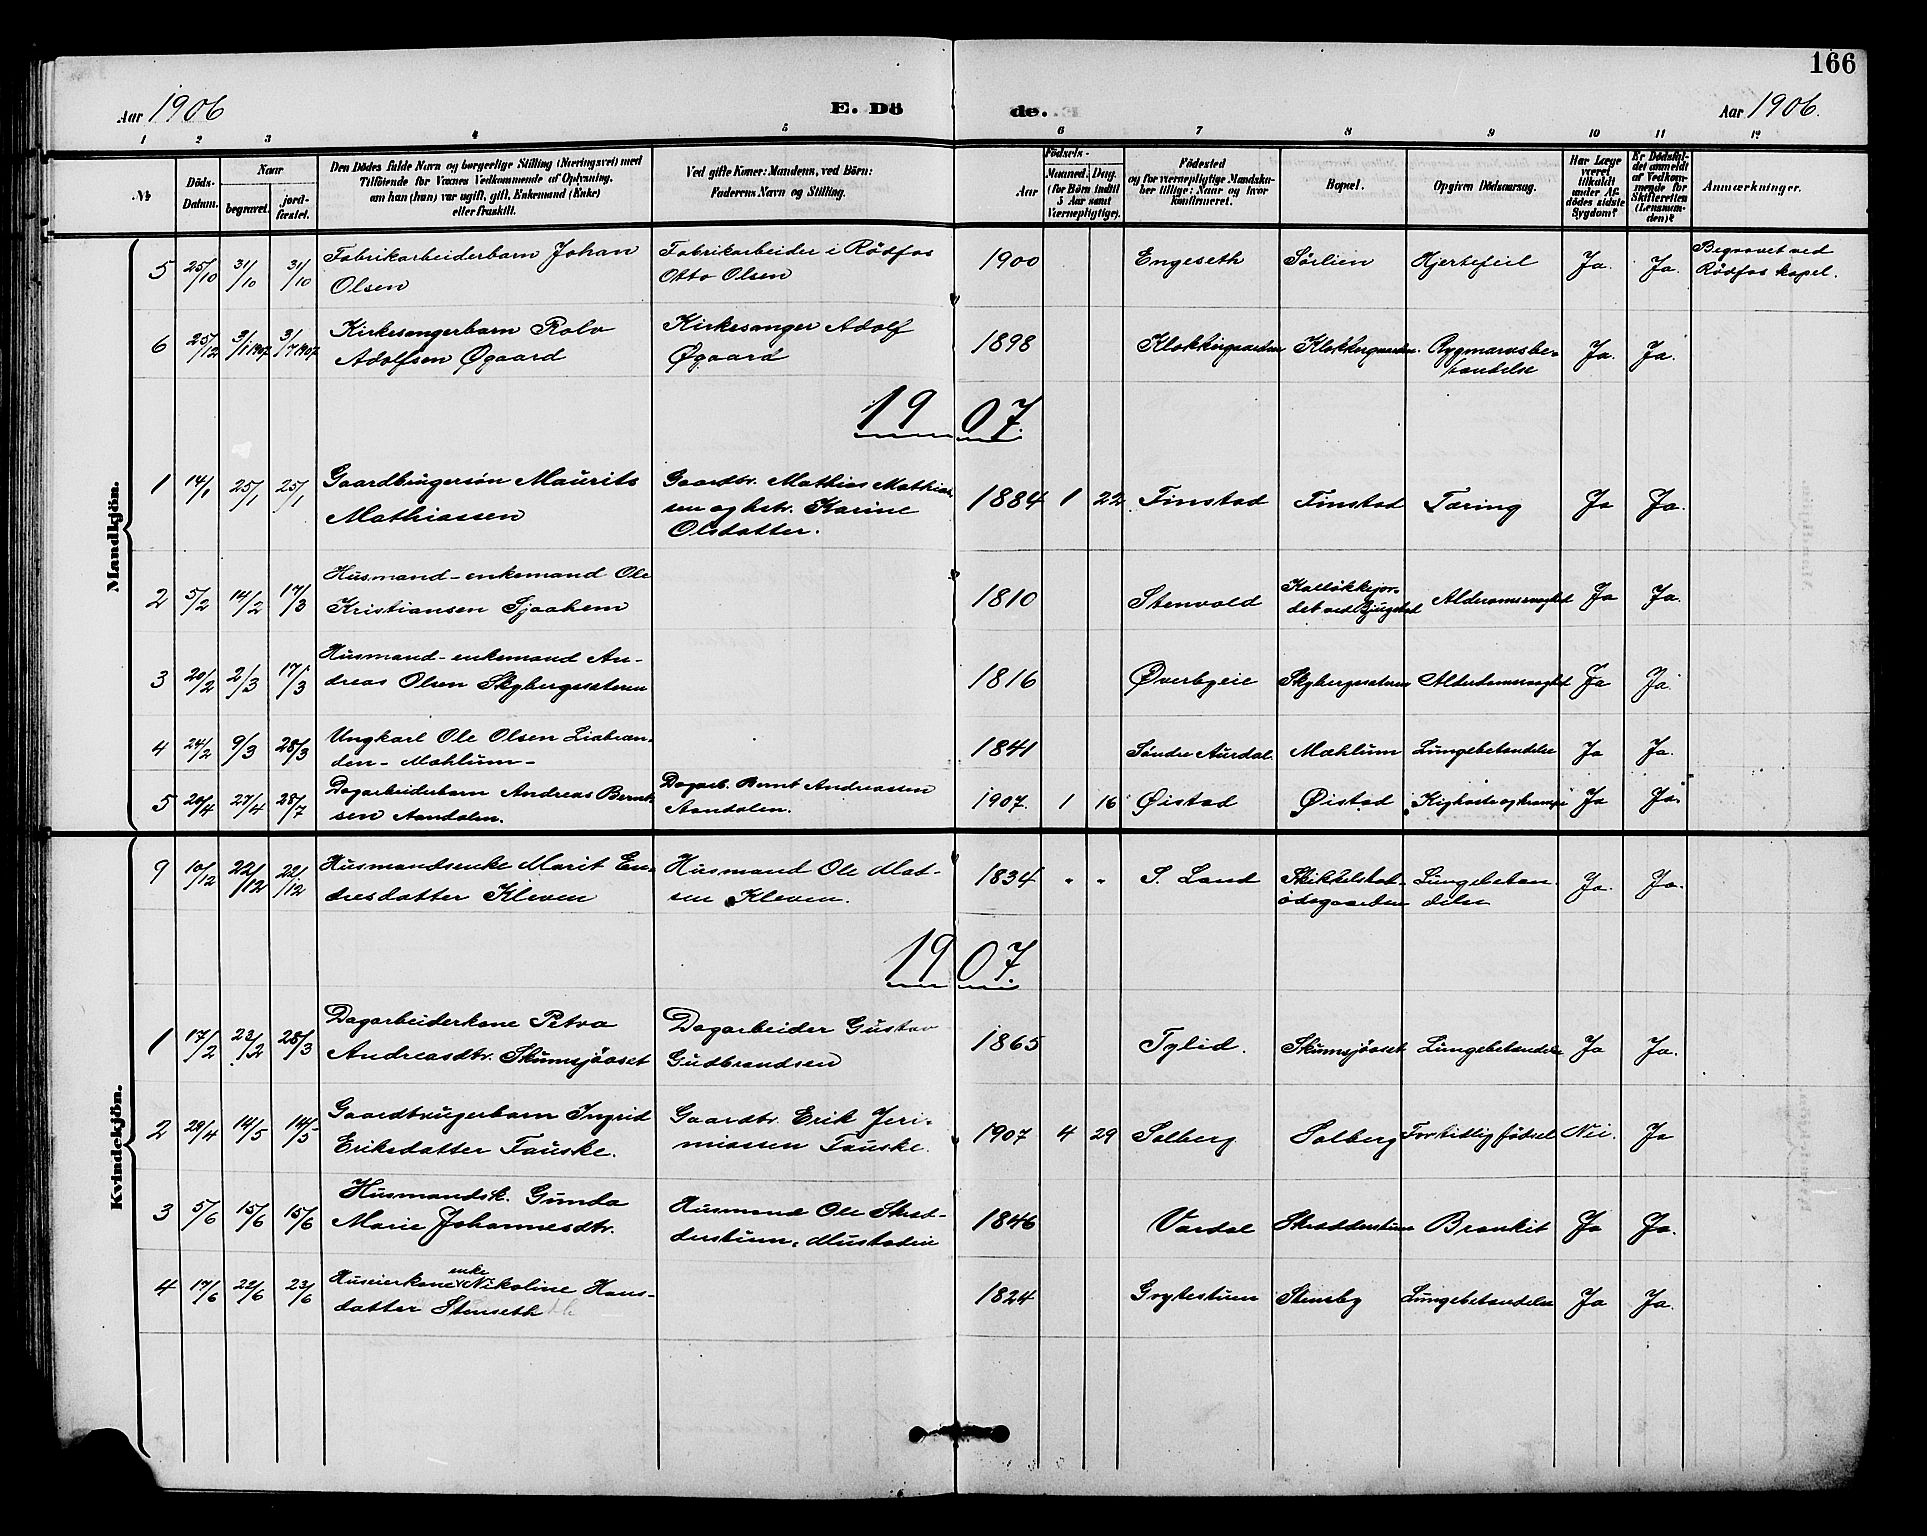 166
Aar 1906 E. Dö de. Aar 1906.
1 2 3 4 5 6 7 8 9 10 11 12
No. Döds-Datum. Naar begravet. jordfæstet. Den Dödes fulde Navn og borgerlige Stilling (Næringsvei) med Tilföiende for Voxnes Vedkommende af Oplysning, om han (hun) var ugift, gift, Enkemand (Enke) eller fraskilt. Ved gifte Koner: Mandens, ved Börn: Faderens Navn og Stilling. Födsels- Aar Maaned. Dag. (for Börn indtil 5 Aar samt Værnepligtige). Födested og for værnepligtige Mandskaber tillige: Naar og hvor konfirmeret. Bopæl. Opgiven Dödsaarsag. Har Læge været tilkaldt under Afdödes sidste Sygdom? Er Dödsfaldet anmeldt af Vedkommende for Skifteretten (Lensmanden)? Anmærkninger.
Mandkjön.
5 25/10 31/10 31/10 Fabrikarbeiderbarn Johan Olsen Fabrikarbeider i Rödfos Otto Olsen 1900 Engeseth Sörlien Hjertefeil Ja. Ja. Begravet ved Rödfos kapel.
6 25/12 3/1 1907 3/7 1907 Kirkesangerbarn Rolv Adolfsen Øgaard Kirkesanger Adolf Øgaard 1898 Klokkergaarden Klokkergaarden. Rygmarvsbetændelse Ja. Ja.
1907.
1 14/1 25/1 25/1 Gaardbrugersön Maurits Mathiassen Gaardbr. Mathias Mathiassen og hstr. Karine Olsdatter. 1884 1 22 Finstad Finstad Tæring Ja Ja.
2 5/2 14/2 17/3 Husmand-enkemand Ole Kristiansen Sjaahem 1810 Stenvold Kallökkejordet ved Bjugstad Alderdomssvaghed Ja Ja.
3 20/2 2/3 17/3 Husmand-enkemand Andreas Olsen Skybergssæteren 1816 Øverbyeie Skybergssæteren Alderdomssvaghed Ja Ja.
4 24/2 9/3 28/3 Ungkarl Ole Olsen Liabrænden-Mæhlum- 1841 Söndre Aurdal. Mæhlum Lungebetændelse Ja Ja.
5 20/4 27/4 28/7 Dagarbeiderbarn Andreas Berntsen Aandalen. Dagarb. Bernt Andreassen Aandalen. 1907. 1 16 Øistad Øistad Kighoste og krampe Ja Ja.
Kvindekjön.
9 10/12 22/12 22/12 Husmandsenke Marit Endresdatter Kleven Husmand Ole Madsen Kleven. 1834 " " S. Land Skikkelstadödegaarden Lungebetændelse Ja. Ja.
1907.
1 17/2 23/2 28/3 Dagarbeiderkone Petra Andreasdtr. Skumsjöaset Dagarbeider Gustav Gudbrandsen 1865 Fylid. Skumsjöaset Lungebetændelse Ja Ja.
2 29/4 14/5 14/5 Gaardbrugerbarn Ingrid Eriksdatter Fauske. Gaardbr. Erik Jerimiassen Fauske. 1907 4 29 Solberg Solberg For tidlig födsel Nei. Ja
3 5/6 15/6 15/6 Husmandsk. Gunda Marie Johannesdtr. Husmand Ole Skredderstuen, Mustadeie 1846 Vardal Skredderstuen Bronkit Ja Ja.
4 17/6 22/6 23/6 Huseierkone enke Nikoline Hansdatter Stenseth 1824 Grytestuen Stensby Lungebetændelse Ja Ja.